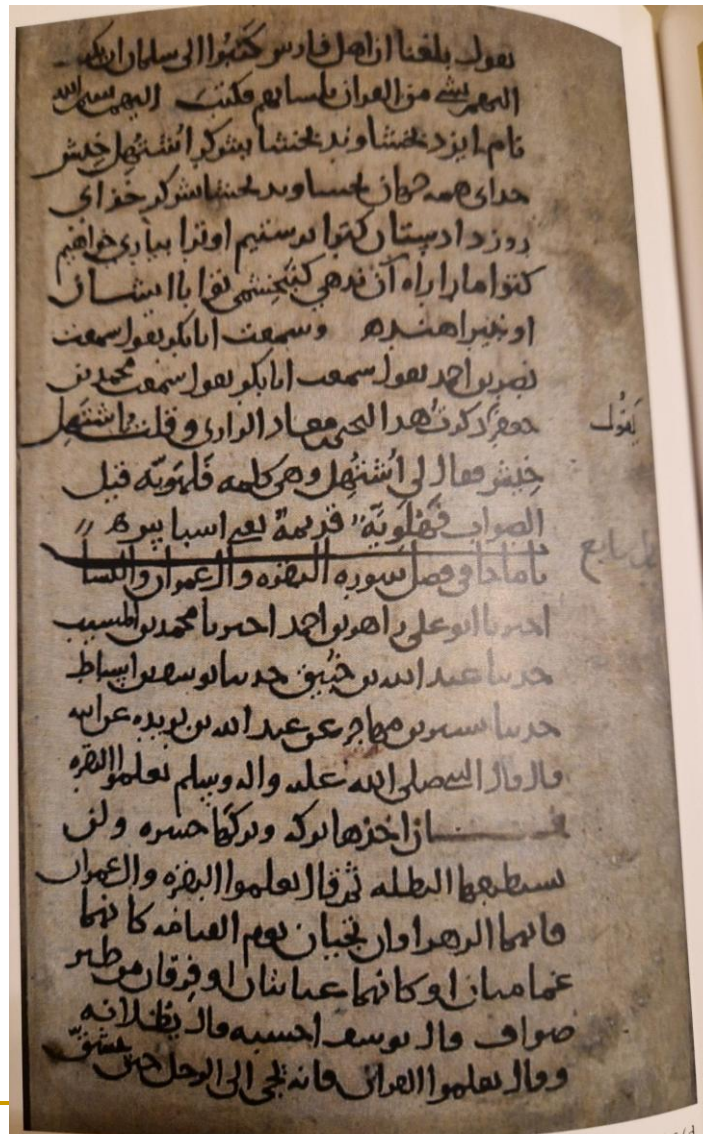 يقول بلغنا ان اهل فارس كتبوا الى سلمان ان
اليهم بشي من القران بلسانهم فكتب اليهم بسم الله
نام ايزد بخشاوند بخشايشوكر اشتهل خيش
خداى همه جهان بخساوند بخشايشوكر خداى
روز دادستان كتوا برستيم اوترا بيارى خواهيم
كتوا مارا راه آن ندهى كبخشمى تقرا باايشان
او خيراهند به وسمعت ابابكر يقول سمعت
نصر بن احمد يقول سمعت ابابكر يقول سمعت محمد بن
جعفر ذكرت هدا ليحيى معاد الرازى وقلت اشتهل
يقول
خيش فقال لى اشتهل وهى كلمه فلهويه قيل
الصواب فهلوية قديمة يعنى اسبا
باب ما جا فى فضل سوره البقره وال عمران والنسا
احبرنا ابو على زاهر بن احمد احبرنا محمد بن المسيب
حدثنا عبد الله بن خبيق حدثنا يوسف بن اسباط
حدثنا بشير بن مهاجر عن عبد الله بن بريده عن ابيه
قال قال النبى صلى الله عليه واله وسلم تعلموا البقره
فـــان اخذها بركه وتركها حسره ولن
تستطيعها البطله ثم قال تعلموا البقره وال عمران
فانهما الزهراوان تجيان يوم القيامه كانهما
غمامتان او كانهما غيايتان او فرقان من طير
صواف قال يوسف احسبه قال يظلانه
وقال تعلموا القران فانه يجى الى الرجل حين ينشق